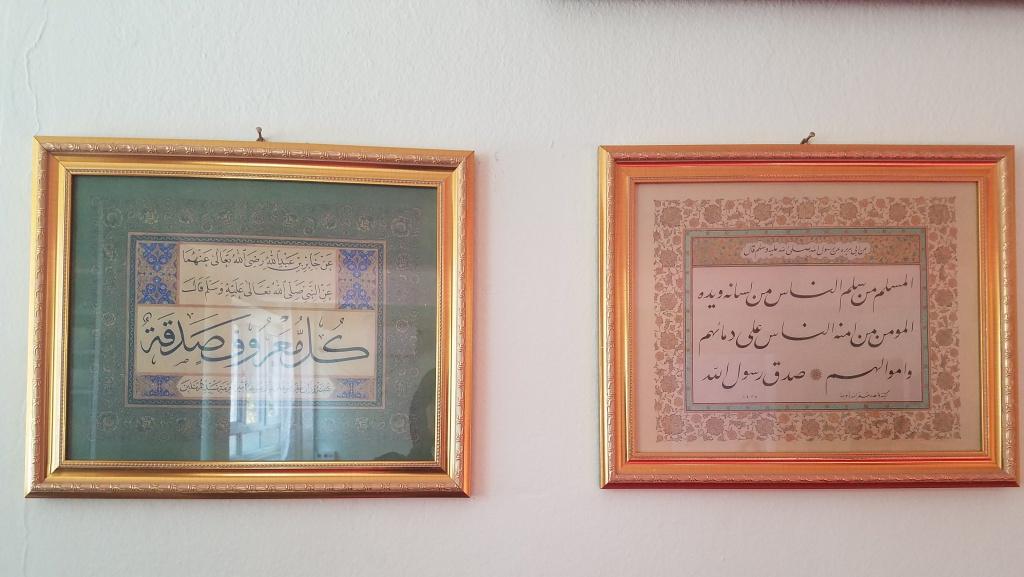 عَنْ جَابِرِ بْنِ عَبْدِ اللهِ رَضِىَ اللهُ تَعَالٰى عَنْهُمَا
عَنِ النَّبِىِّ صَلَّى اللهُ تَعَالٰى عَلَيْهِ وَسَلَّمَ قَالَ
كُلُّ مَعْرُوفٍ صَدَقَةٌ
عن ابى هريره عن رسول الله صلى الله عليه وسلم قال
المسلم من سلم الناس من لسانه ويده
المومن من امنه الناس على دمائهم
واموالهم صدق رسول الله